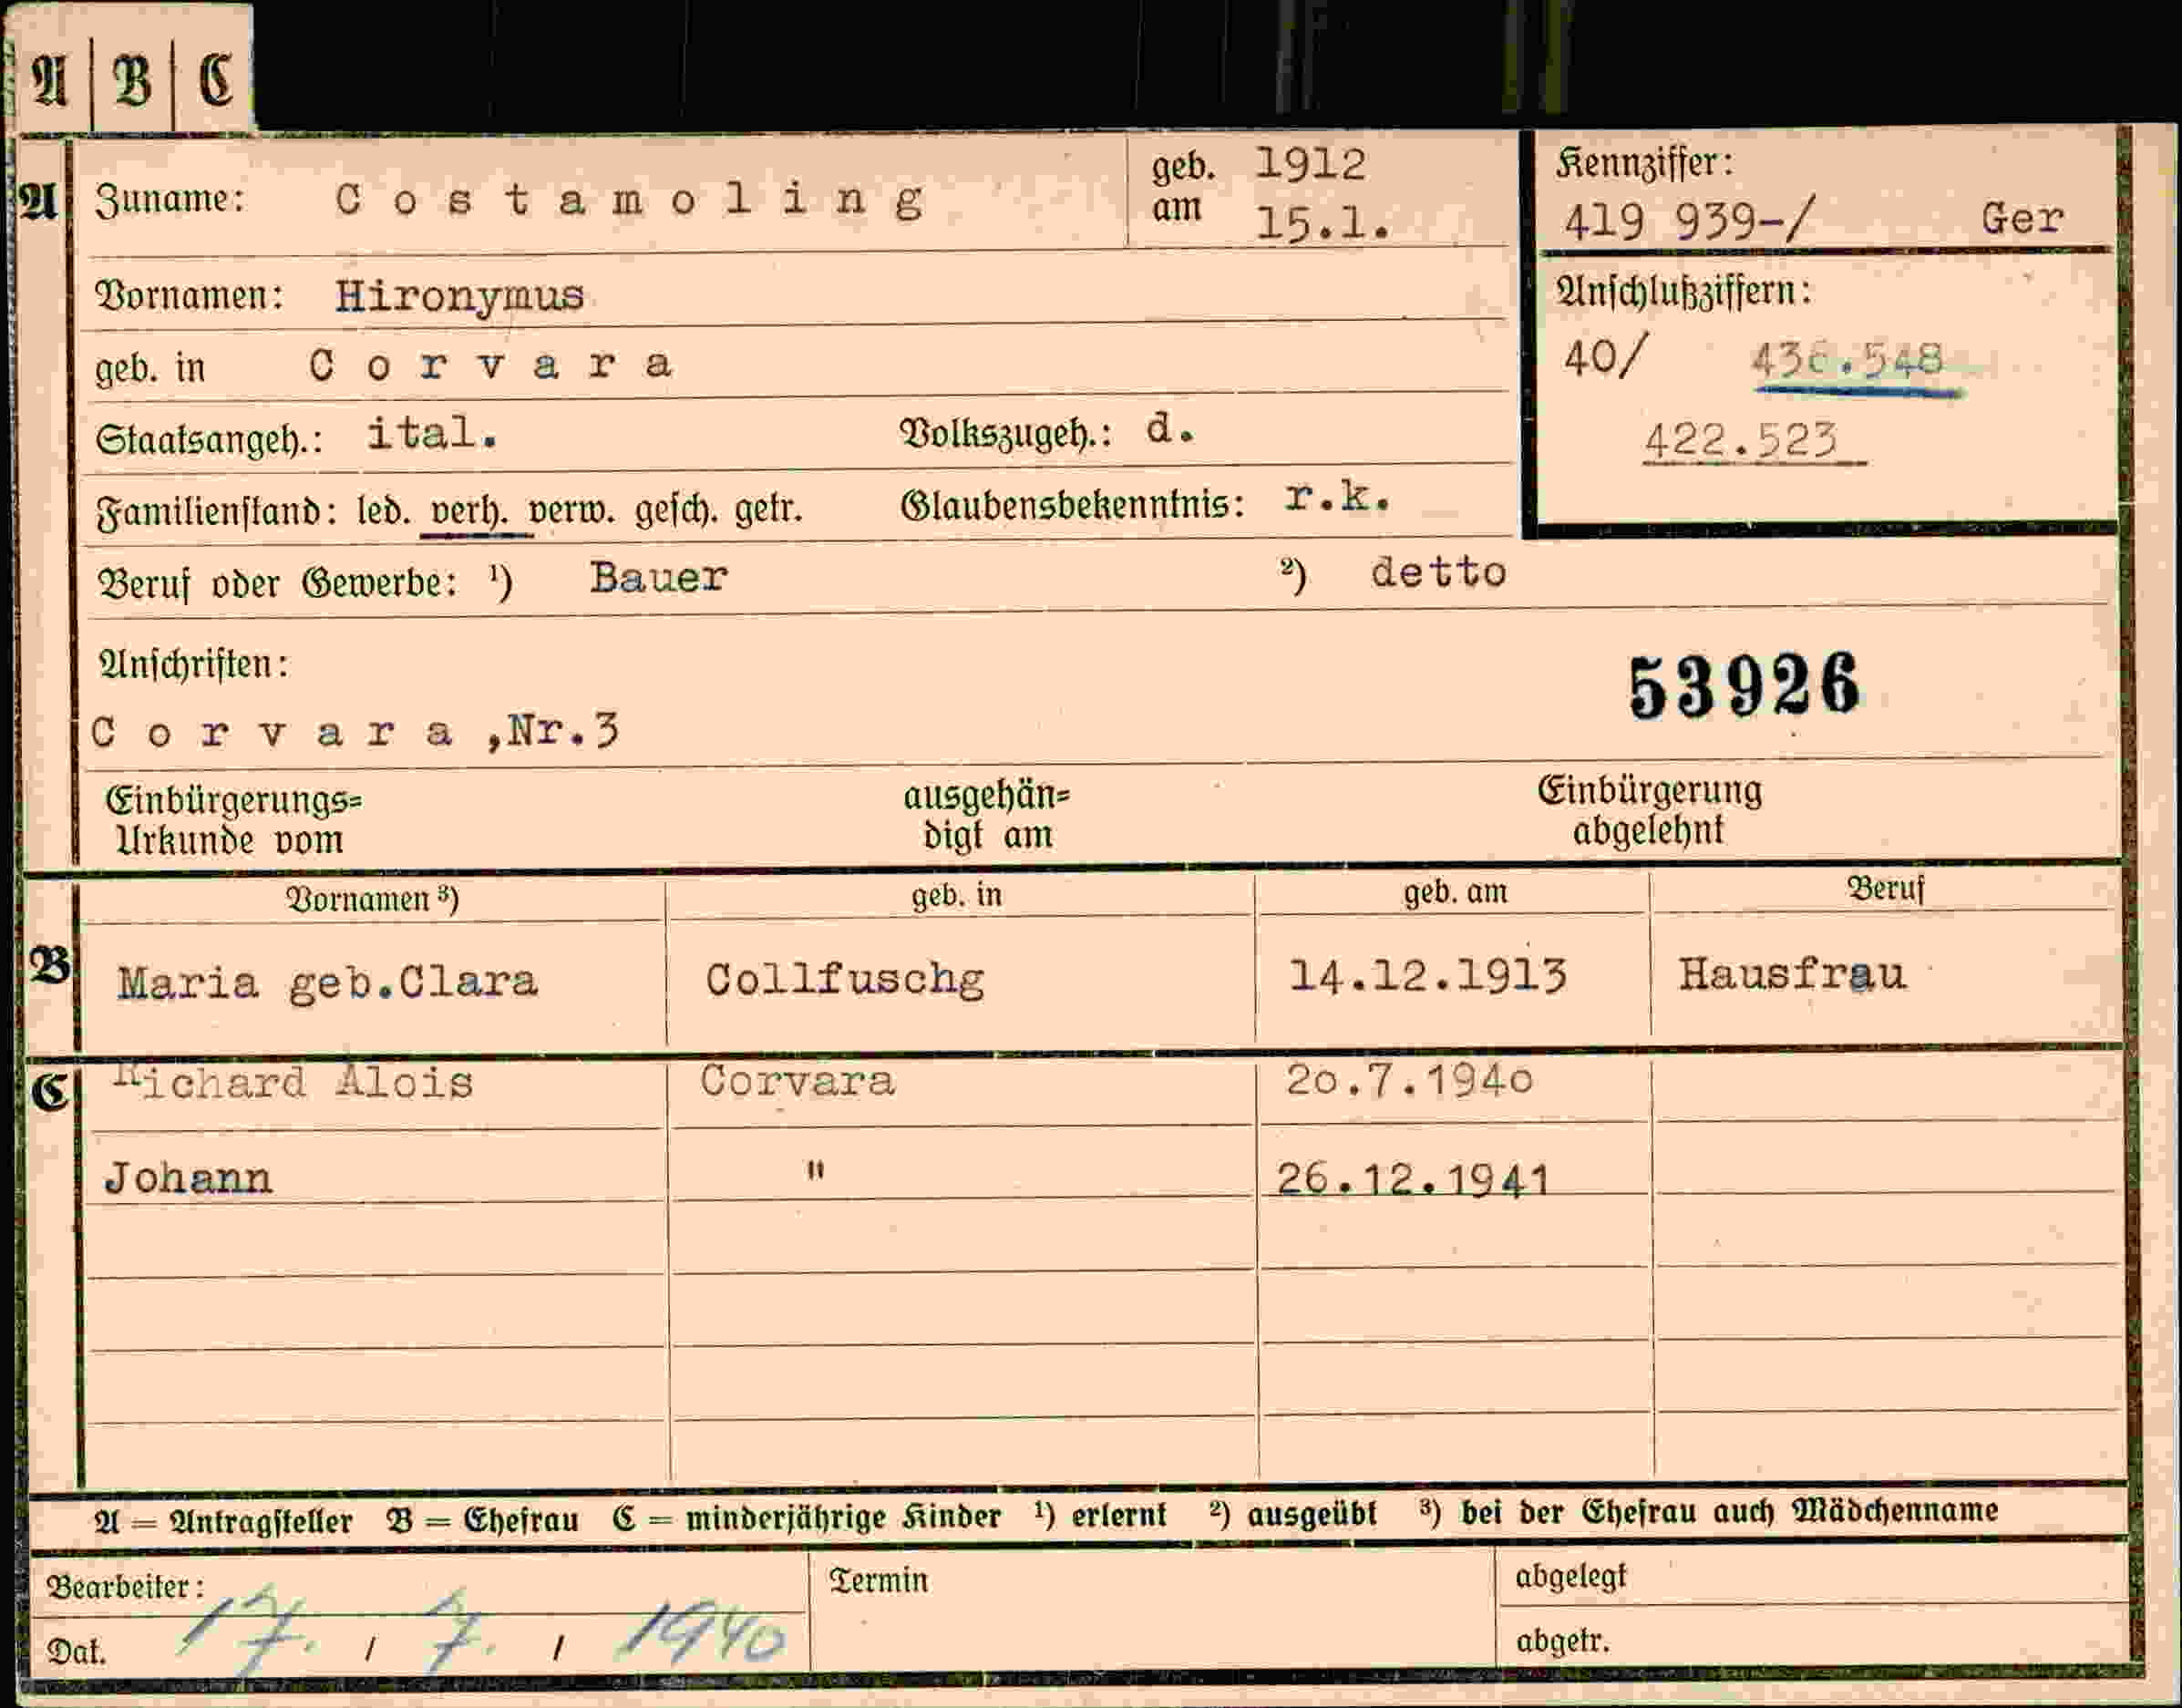 A | B | C
A Zuname: Costamoling geb. am 1912 15.1. Kennziffer:
419 939-/ Ger
Vornamen: Hironymus Anschlußziffern:
geb. in Corvara 40/ 436.548
Staatsangeh.: ital. Volkszugeh.: d. 422.523
Familienstand: led. verh. verw. gesch. getr. Glaubensbekenntnis: r.k.
Beruf oder Gewerbe: ¹) Bauer ²) detto
Anschriften: 53926
Corvara,Nr.3
Einbürgerungs= ausgehän= Einbürgerung
Urkunde vom digt am abgelehnt
Vornamen ³) geb. in geb. am Beruf
B Maria geb.Clara Collfuschg 14.12.1913 Hausfrau
C Richard Alois Corvara 20.7.1940
Johann " 26.12.1941
A = Antragsteller B = Ehefrau C = minderjährige Kinder ¹) erlernt ²) ausgeübt ³) bei der Ehefrau auch Mädchenname
Bearbeiter: Termin abgelegt
Dat. 17. / 7. / 1940 abgetr.